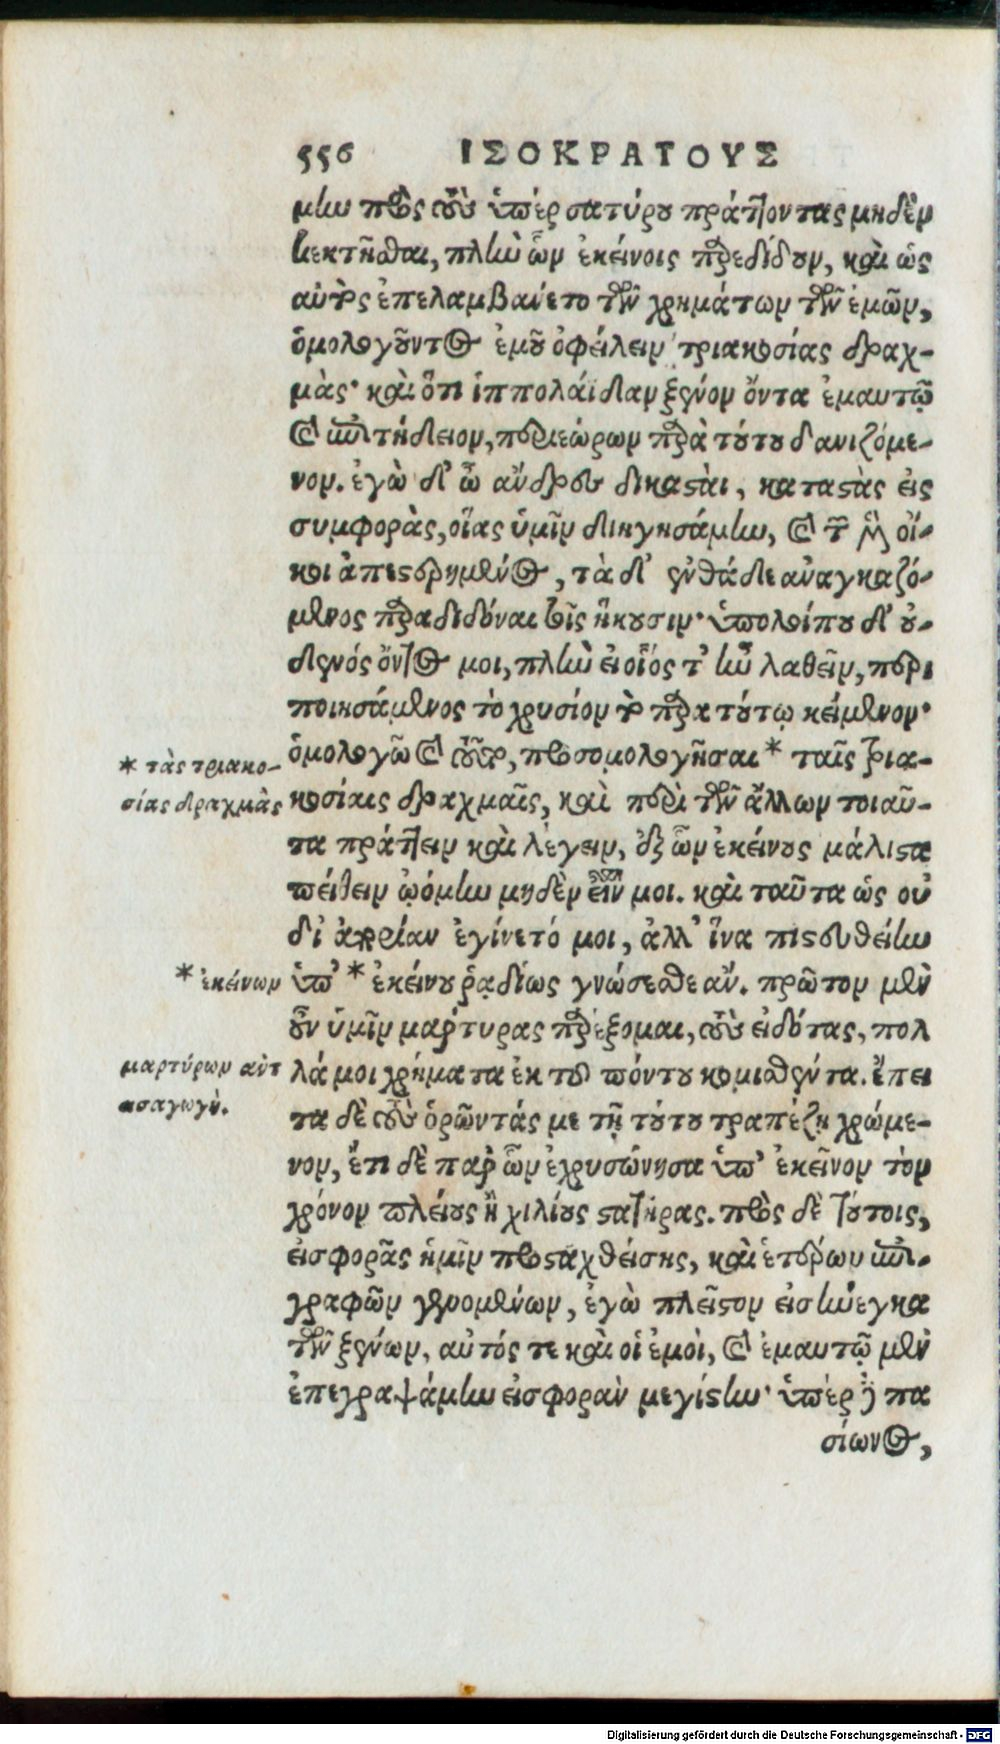 556 ΙΣΟΚΡΑΤΟΥΣ
μην πρὸς τοὺς ὑπὲρ σατύρου πράττοντας μηδὲν
κεκτῆσθαι, πλὴν ὧν ἐκείνοις παρεδίδουν, καὶ ὡς
αὐτὸς ἐπελαμβανέτο τῶν χρημάτων τῶν ἐμῶν,
ὁμολογοῦντος ἐμοῦ ὀφείλειν τριακοσίας δραχ-
μάς· καὶ ὅτι ἱππολάϊδαν ξένον ὄντα ἐμαυτῷ
καὶ ἐπιτήδειον, περιεώρων παρὰ τούτου δανιζόμε-
νον. ἐγὼ δ' ὦ ἄνδρες δικασταὶ, καταστὰς εἰς
συμφορὰς, οἵας ὑμῖν διηγησάμην, καὶ τῶν μὲν οἴ-
κοι ἀπεστερημένος, τὰ δ' ἐνθάδε ἀναγκαζό-
μενος παραδιδόναι τοῖς ἥκουσιν· ὑπολοίπου δ' οὐ-
δενός ὄντος μοι, πλὴν εἰ οἷός τ' ἦν λαθεῖν, περι
ποιησάμενος τὸ χρυσίον τὸ παρὰ τούτῳ κείμενον·
ὁμολογῶ καὶ τούτῳ, προσομολογῆσαι * ταῖς τρια-
* τὰς τριακο-
σίας δραχμὰς
κοσίαις δραχμαῖς, καὶ περὶ τῶν ἄλλων τοιαῦ-
τα πράττειν καὶ λέγειν, ἐξ ὧν ἐκείνους μάλιστα
πείθειν ᾠόμην μηδὲν εἶναι μοι. καὶ ταῦτα ὡς οὐ
δι' ἀπορίαν ἐγίνετό μοι, ἀλλ' ἵνα πιστευθείην
* ἐκείνων
ὑπ' * ἐκείνου ῥᾳδίως γνώσεσθε ἄν. πρῶτον μὲν
οὖν ὑμῖν μάρτυρας παρέξομαι, τοὺς εἰδότας, πολ
μαρτύρων αὖτ
εισαγωγὴ.
λά μοι χρήματα ἐκ τοῦ πόντου κομισθέντα. ἔπει
τα δὲ τοὺς ὁρῶντάς με τῇ τούτου τραπέζῃ χρώμε-
νον, ἔτι δὲ παρ' ὧν ἐχρυσώνησα ὑπ' ἐκεῖνον τὸν
χρόνον πλείους ἢ χιλίους στατῆρας. πρὸς δὲ τούτοις,
εἰσφορᾶς ἡμῖν προσταχθείσης, καὶ ἑτέρων ἐπι-
γραφῶν γενομένων, ἐγὼ πλεῖστον εἰσήνεγκα
τῶν ξένων, αὐτός τε καὶ οἱ ἐμοὶ, καὶ ἐμαυτῷ μὲν
ἐπεγραψάμην εἰσφορὰν μεγίστην· ὑπὲρ δὲ πα
σίωνος,
Digitalisierung gefördert durch die Deutsche Forschungsgemeinschaft - DFG